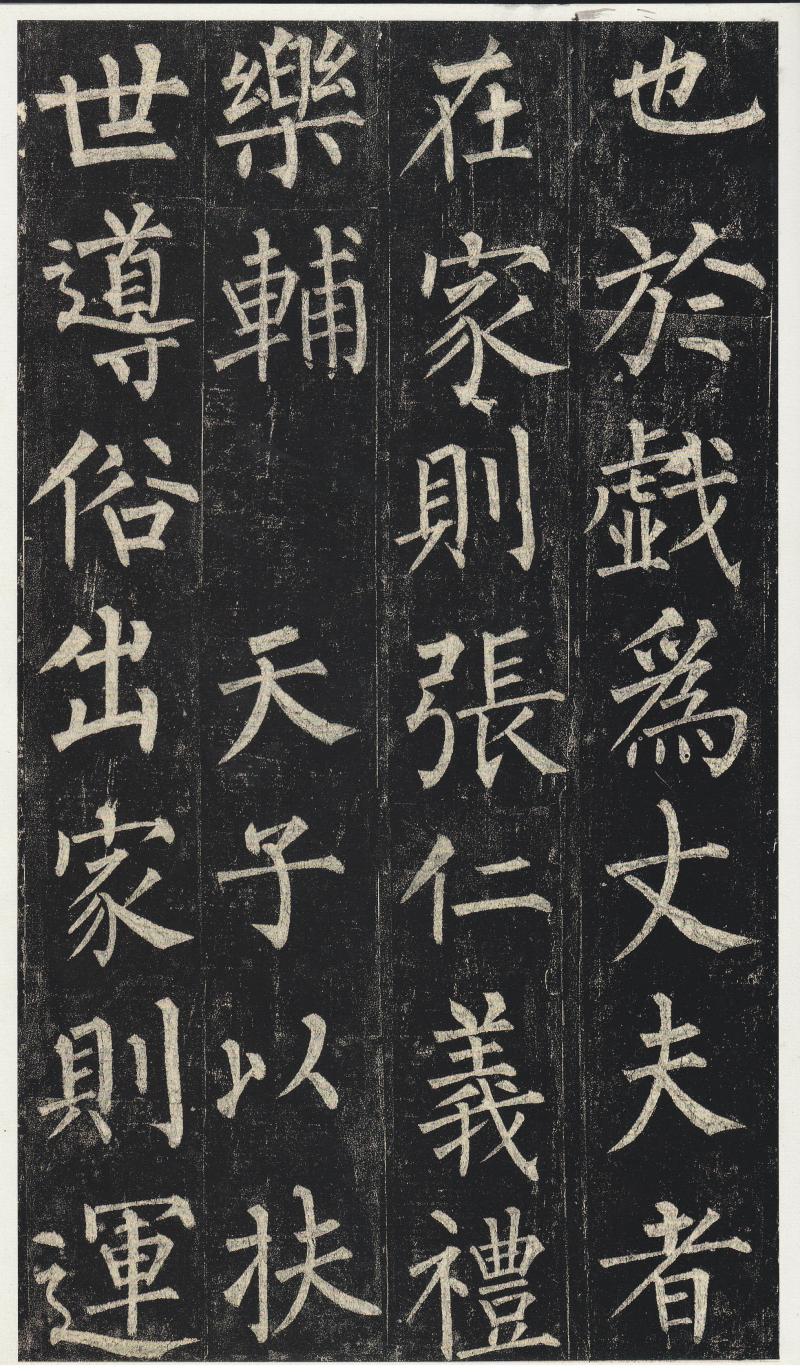 也於戱爲丈夫者
在家則張仁義禮
樂輔天子以扶
世導俗出家則運